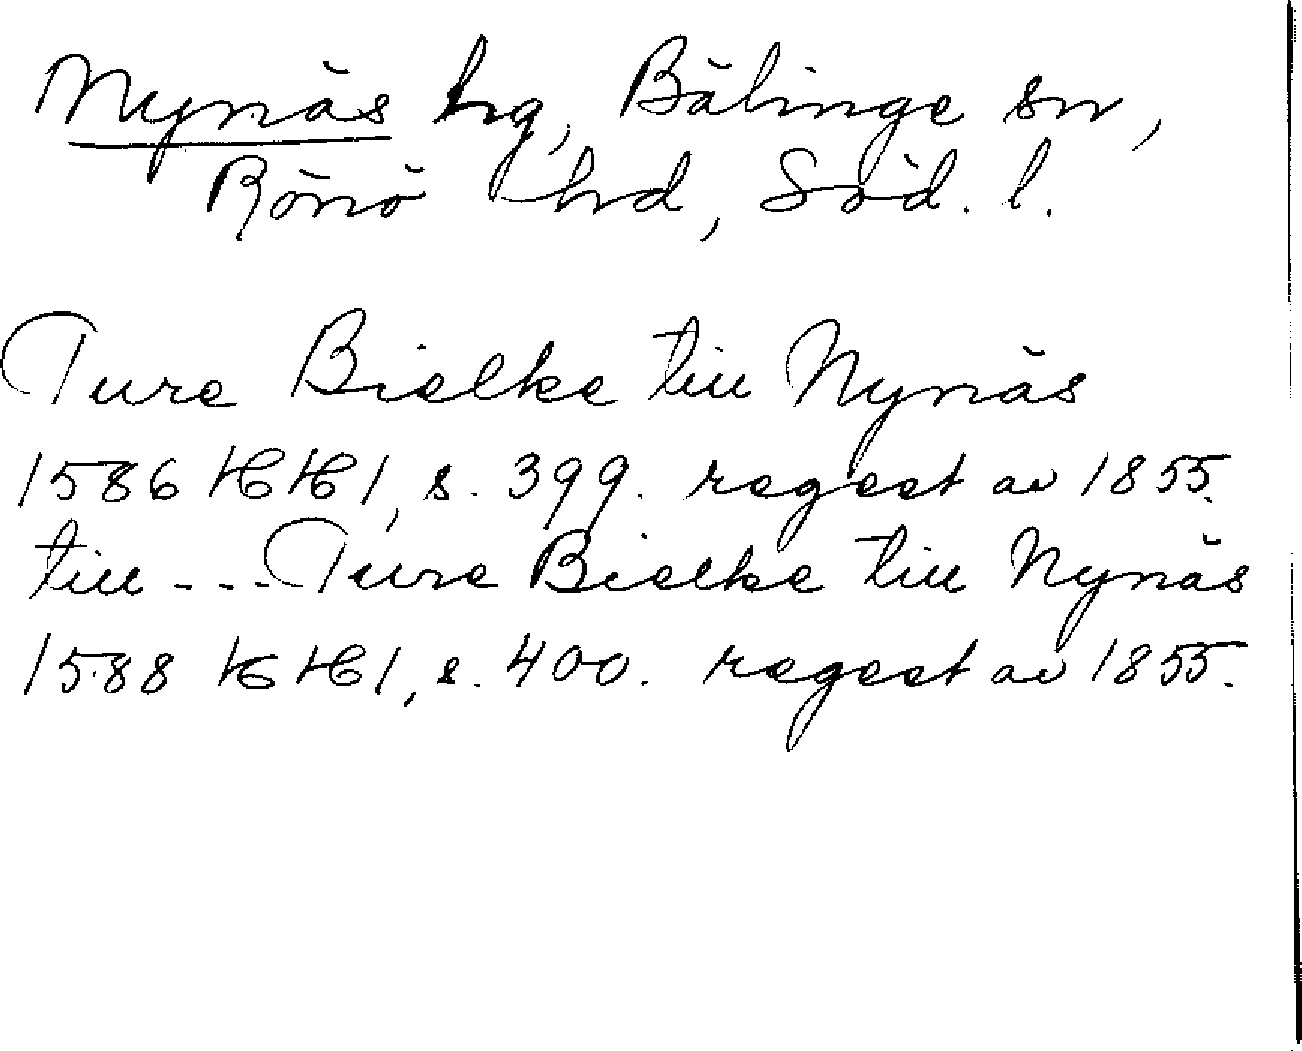 Nynäs hg, Bälinge sn,
Rönö hd, Söd. l.
Ture Bielke till Nynäs
1586 HH 1, s. 399. regest av 1855.
till - - - Ture Bielke till Nynäs
1588 HH 1, s. 400. regest av 1855.